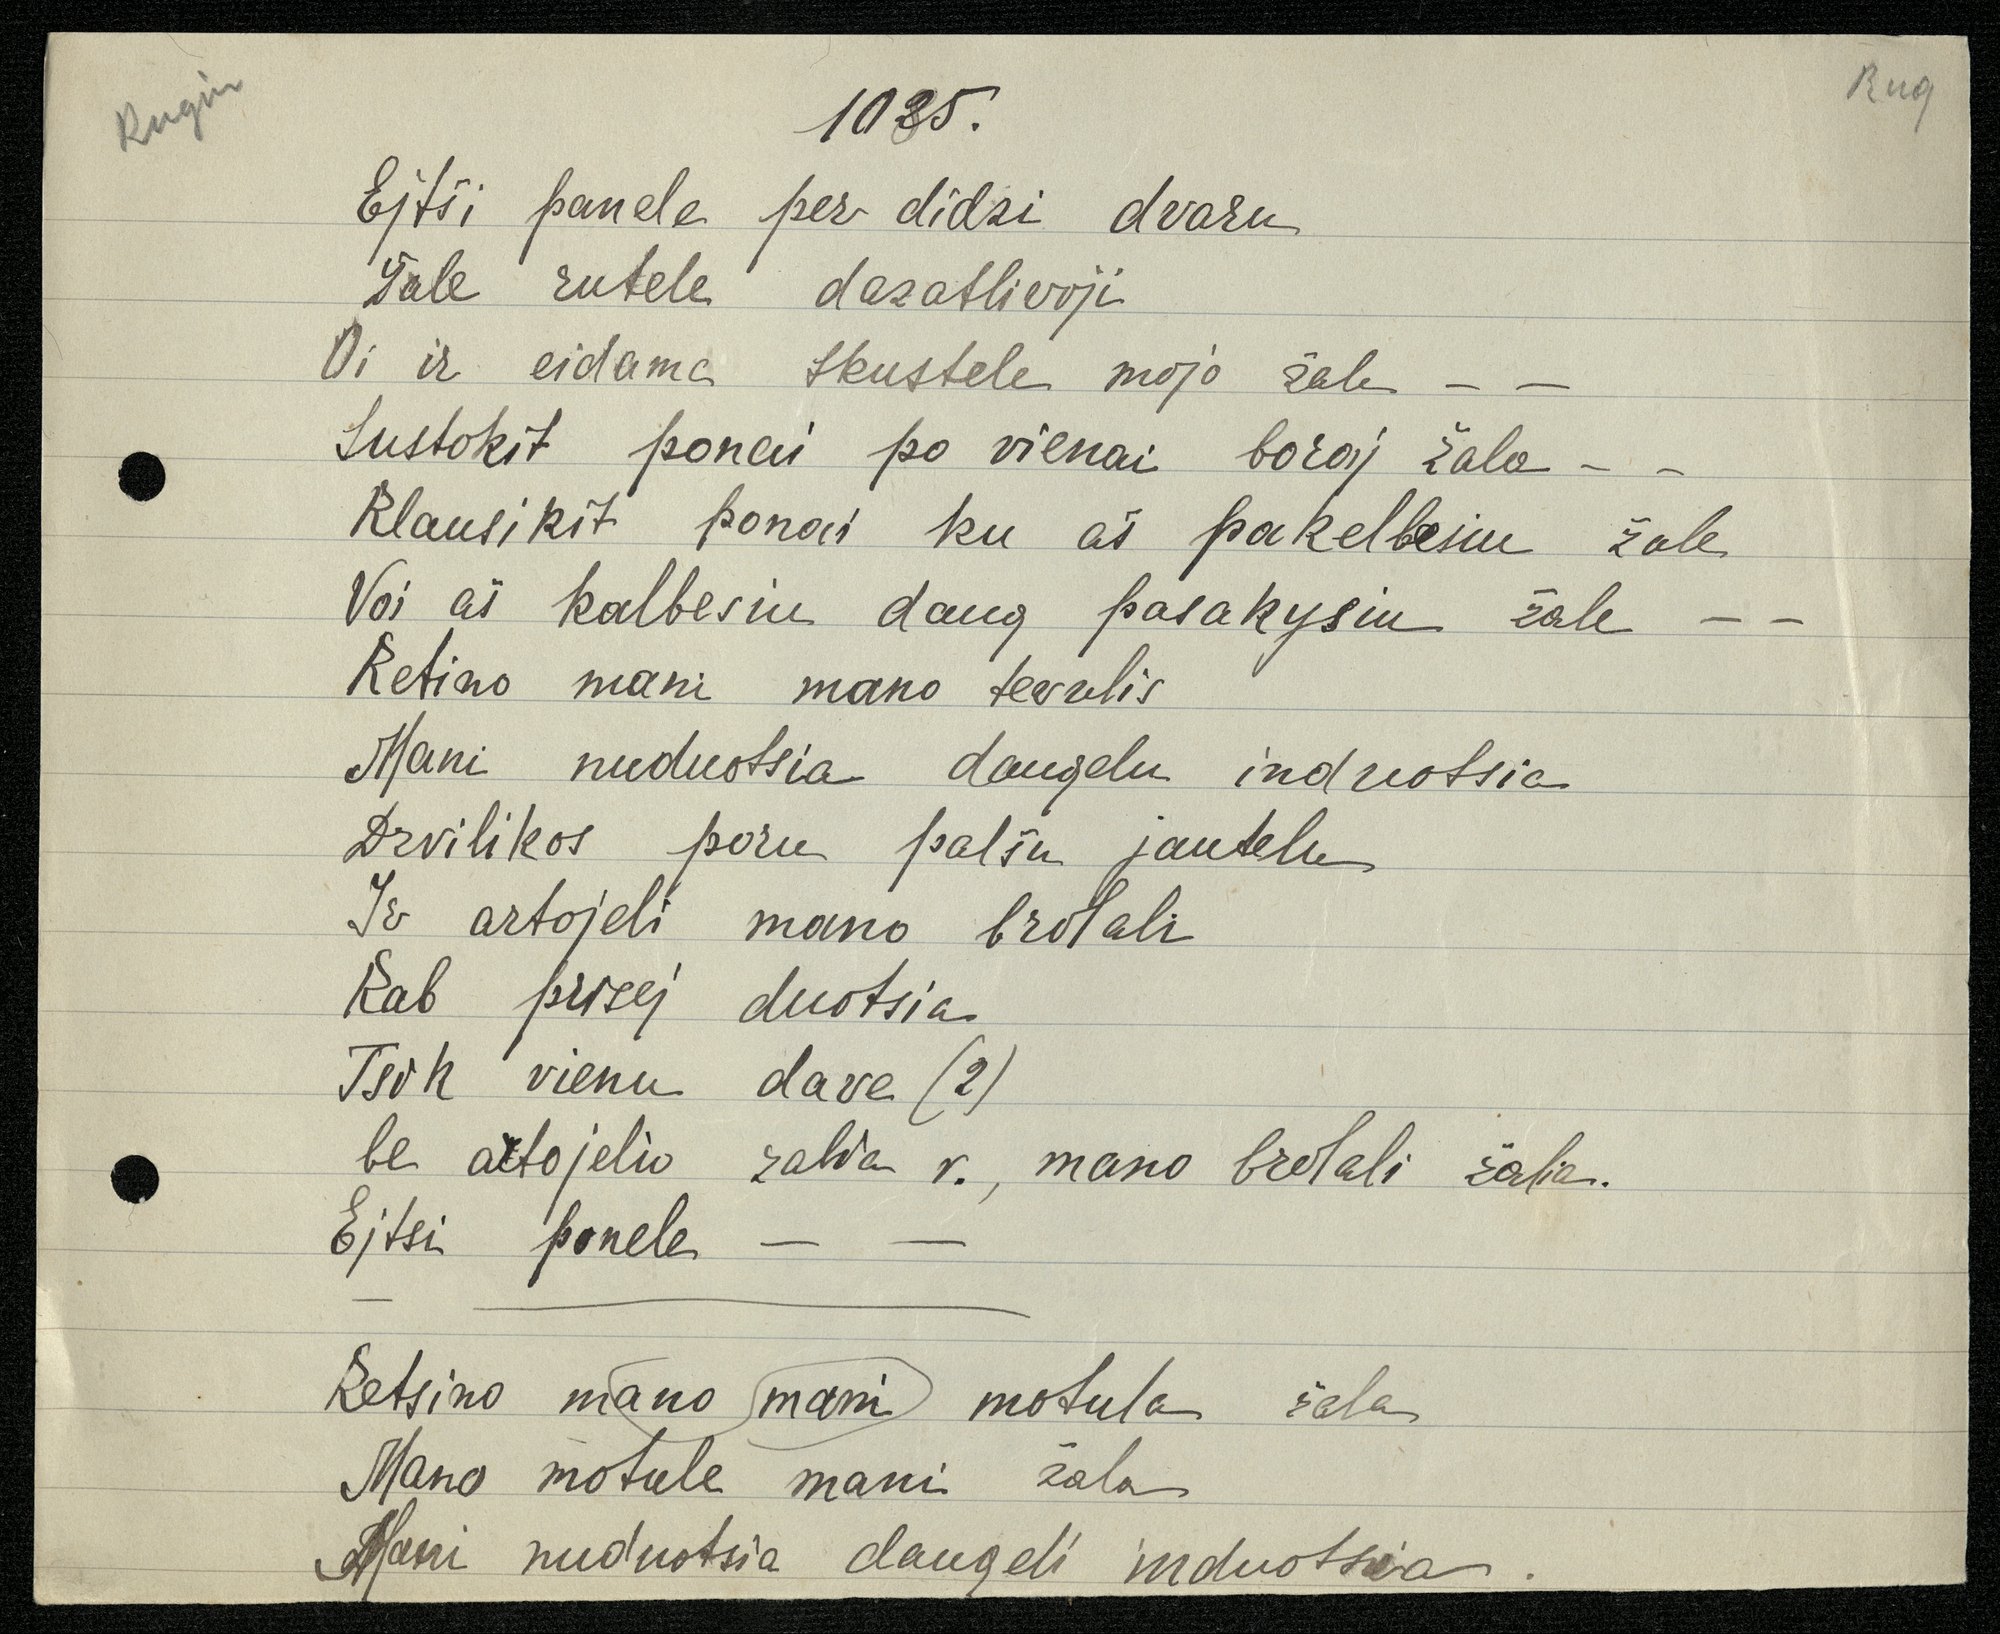 Rugin
Rug
1025.
Ejtši panele per didzi dvaru
Žale rutele dazatlivoji
Oi ir eidama skustele mojo žale – –
Sustokit ponai po vienai boraj žala – –
Klausikit ponai ku aš pakelbesiu žale
Voi aš kalbesiu daug pasakysiu žale – –
Ketino mani mano tevulis
Mani nuduotsia daugelu induotsia
Dzvilikos poru palšu jautelu
Ir artojeli mano brolali
Kab prisej duotsia
Tsvk vienu dave (2)
be artojelio zalia r., mano brolali žalia.
Ejtsi ponele – –
Ketsino mano mani motula žala
Mano motule mani žala
Mani nuduotsia daugeli induotsia.